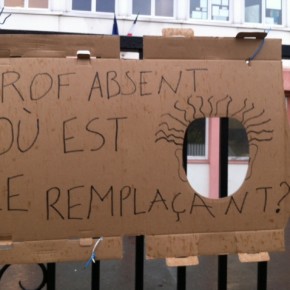 ROF ABSENT
OÙ EST
LE REMPLAÇANT?